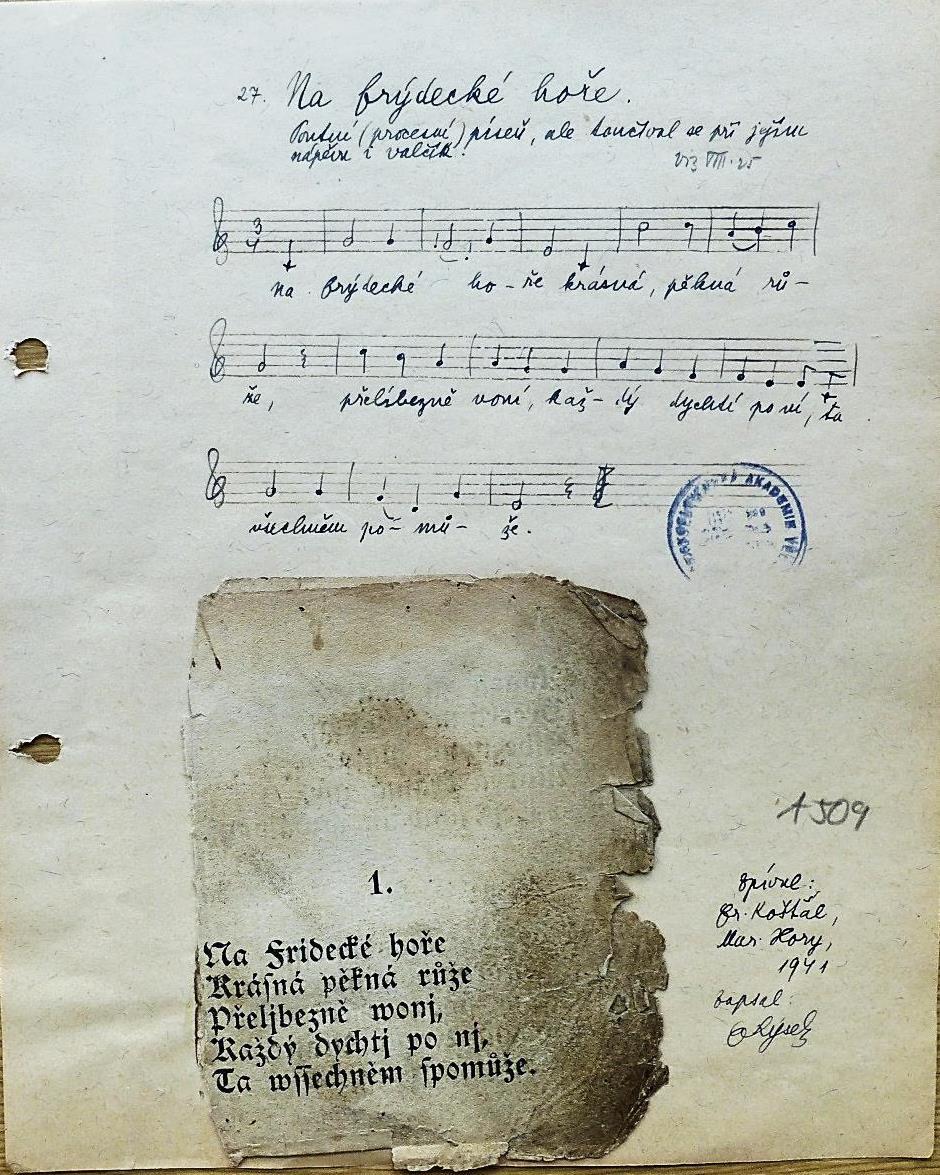 27. Na frýdecké hoře.
Poutní (procesní) píseň, ale tančíval se při jejím
nápěvu i valčík.
viz VIII. 25
3
4
na frýdecké ho-ře krásná, pěkná rů-
že, přelíbezně voní, kaž-dý dychtí po ní, ta
všechněm po-mů-že.
AKADEMIE
1509
1.
Na Fridecké hoře
Kráſná pěkná růže
Přeljbezně wonj,
Každý dychtj po nj,
Ta wſſechněm ſpomůže.
zpíval:
Fr. Košťál,
Mar. Hory,
1941
zapsal: